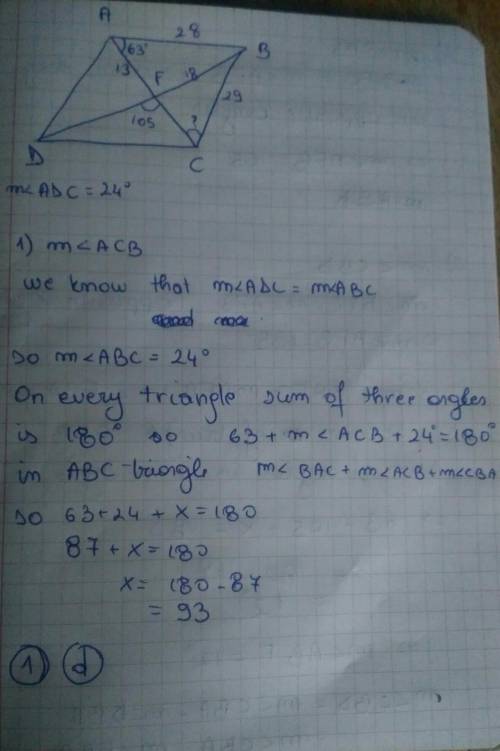 A
28
63°
B
13
F
18
29
105
?
D
C
m<ADC = 24°
1) m<ACB
we know that m<ADC = m<ABC
so m<ABC = 24°
On every triangle sum of three angles
is 180° so 63 + m<ACB + 24° = 180°
in ABC-triangle m< BAC + m<ACB + m<CBA
so 63 + 24 + x = 180
87 + x = 180
x = 180 - 87
= 93
1 d